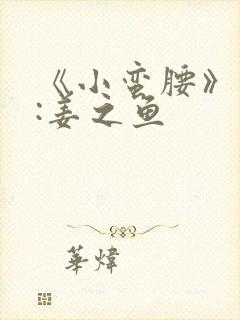 《小蛮腰》
:姜之鱼
華煒